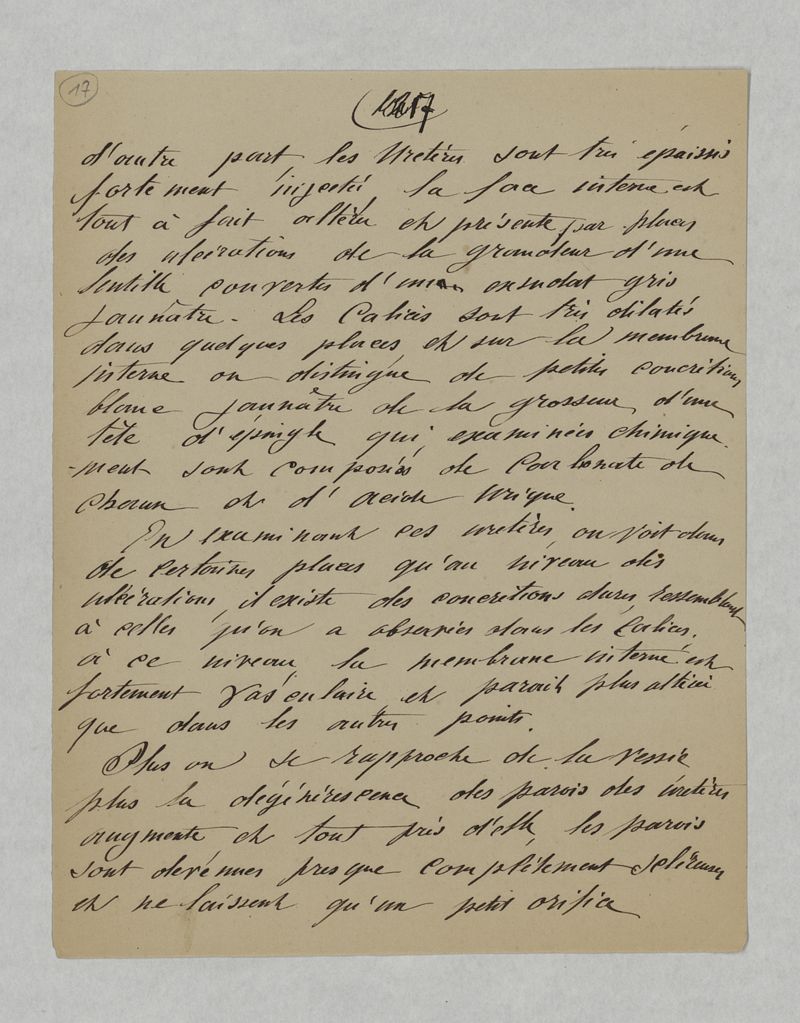 17
d'autre part les Uretères sont très épaissis
fortement injectés, la face interne est
tout à fait altérée et présente par places
des ulcérations de la grandeur d'une
lentille couvertes d'un exsudat gris
jaunâtre. Les Calices sont très dilatés
dans quelques places et sur la membrane
interne on distingue de petites concrétions
blanc jaunâtre de la grosseur d'une
tête d'épingle qui, examinées chimique-
-ment sont composées de Carbonate de
chaux et d'acide Urique.
En examinant ces uretères, on voit dans
de certaines places qu'au niveau des
ulcérations, il existe des concrétions dures, ressemblant
à celles qu'on a observées dans les Calices.
à ce niveau, la membrane interne est
fortement vasculaire et parait plus altérée
que dans les autres points.
Plus on se rapproche de la Vessie
plus la dégénérescence des parois des uretères
augmente et tout près d'elle, les parois
sont devenues presque complètement scléreuses
et ne laissent qu'un petit orifice